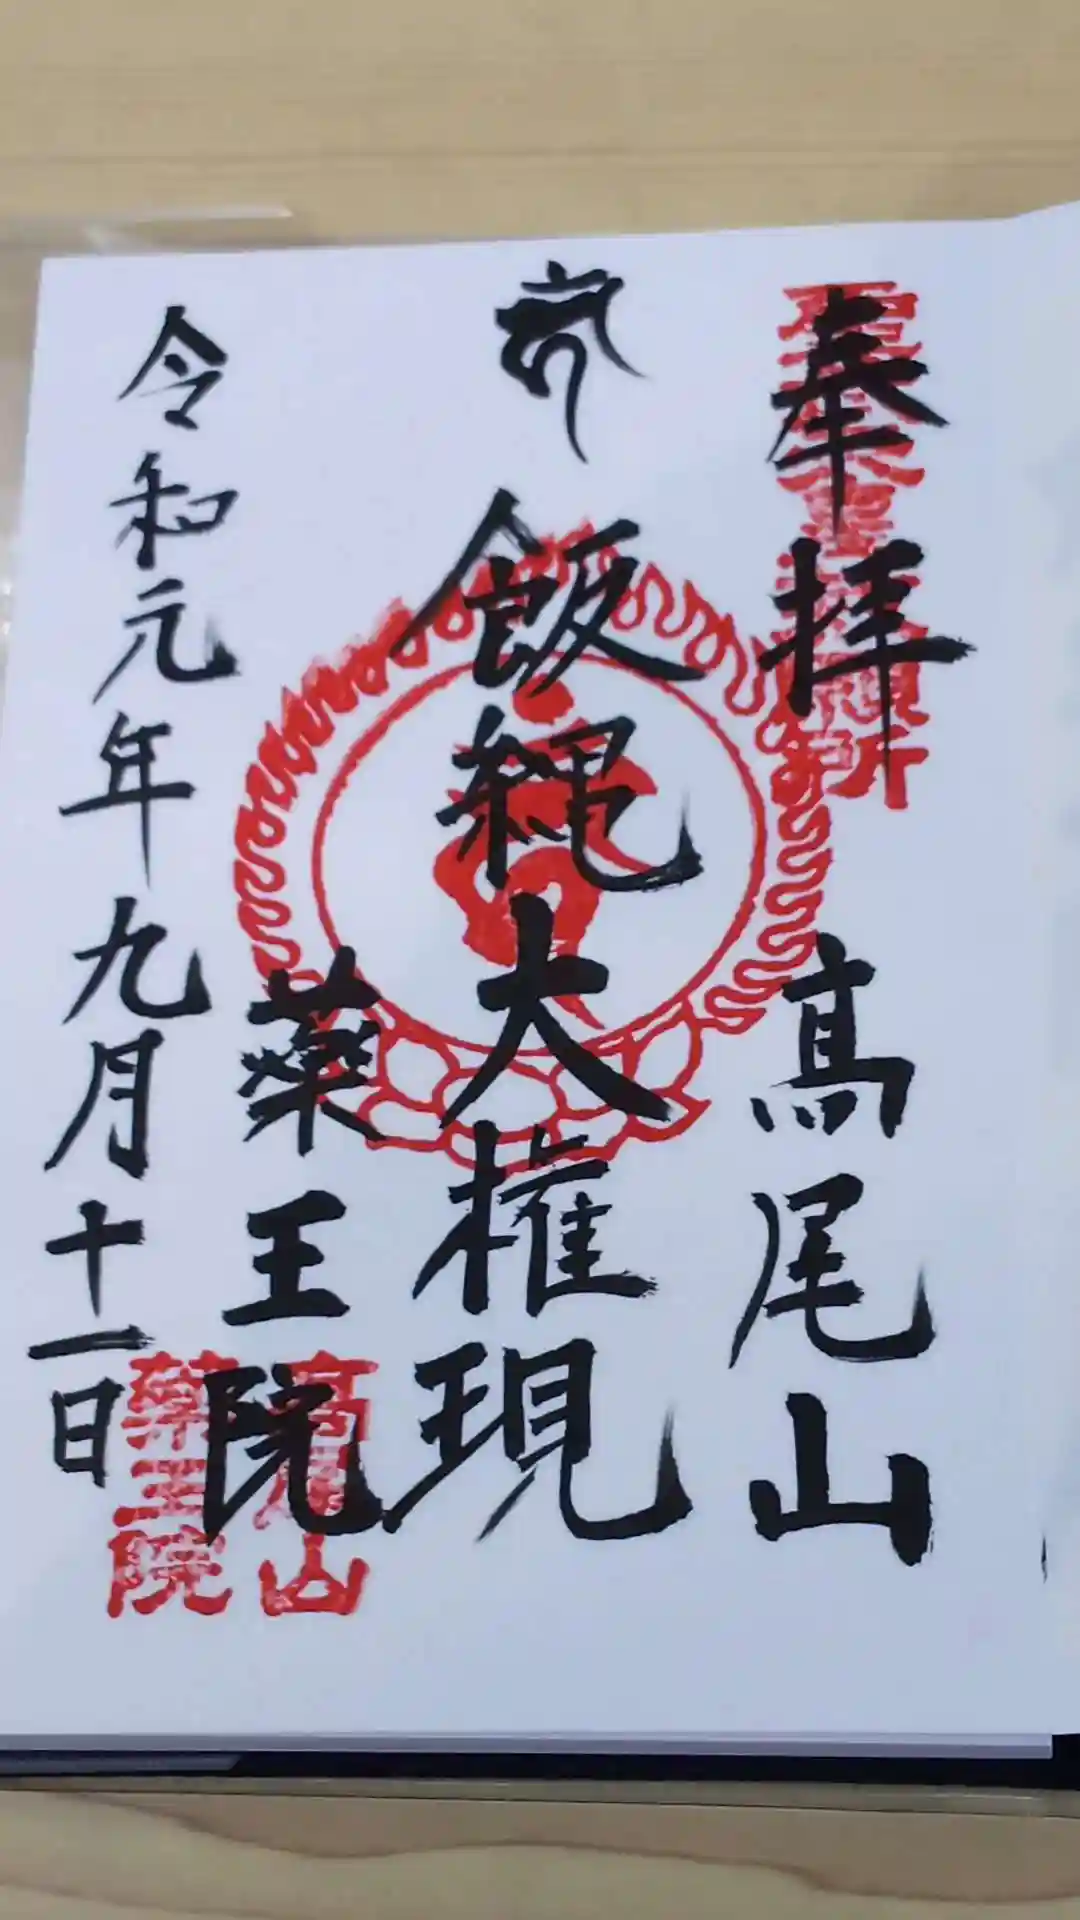 奉拝
高尾山
飯縄大権現
薬王院
令和元年九月十一日
高尾山
薬王院